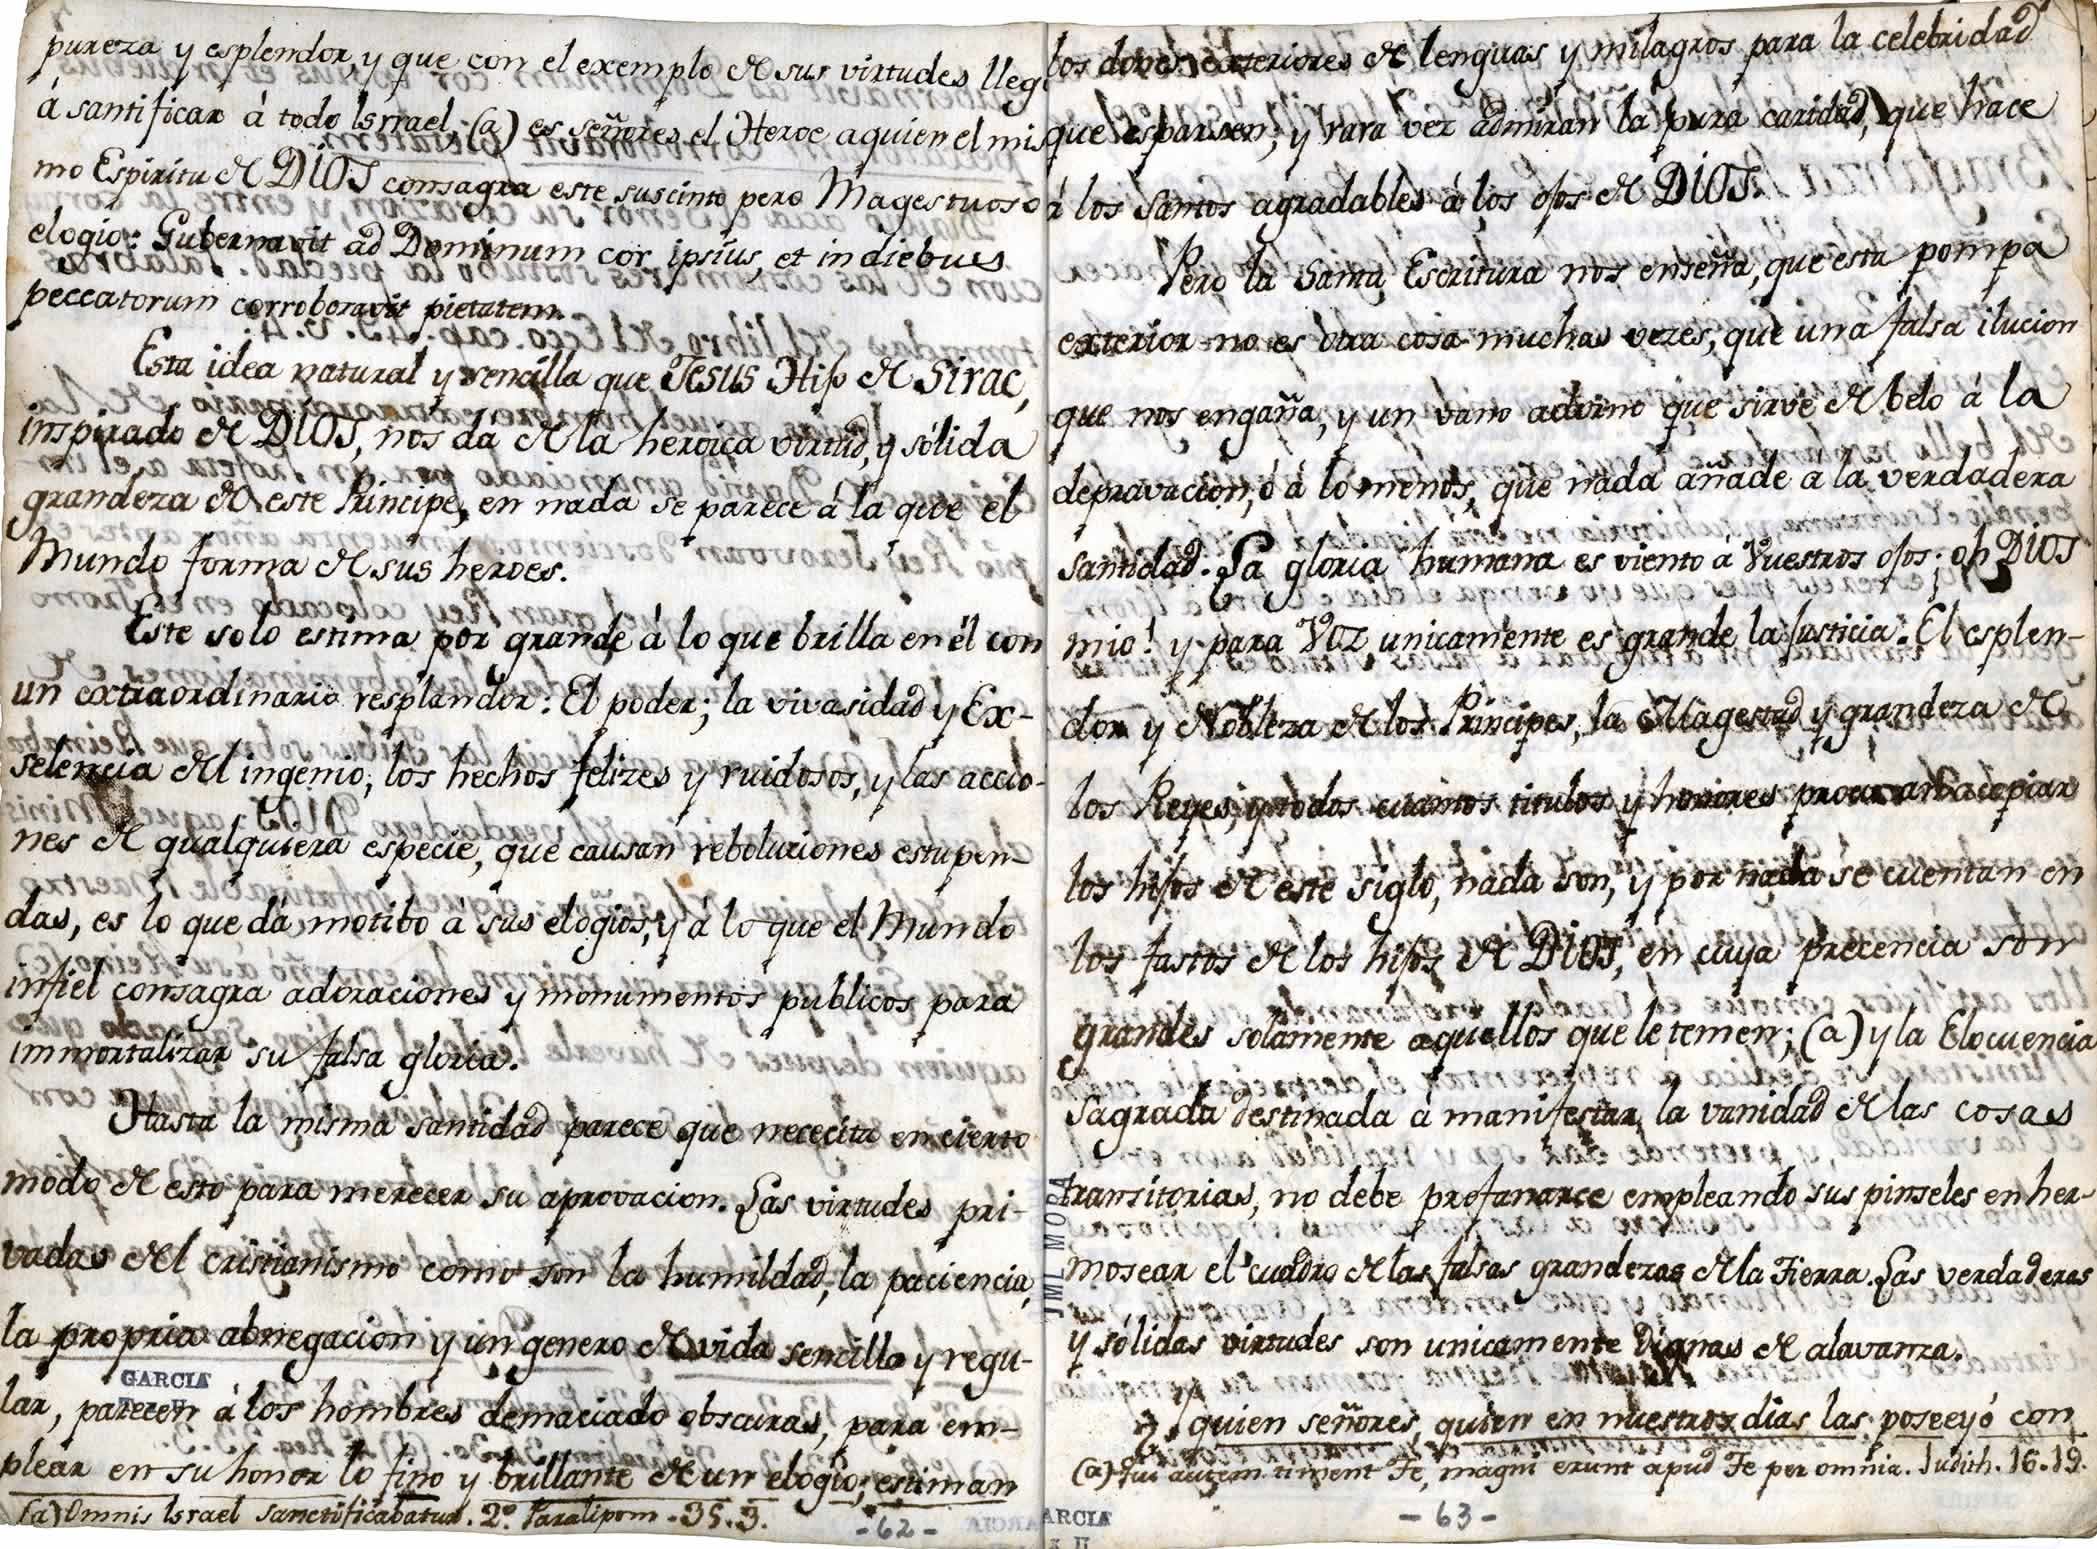 pureza y esplendor, y que con el exemplo de sus virtudes lleg
á santificar á todo Isrrael, (a) es señores el Heroe aquien el mis
mo Espiritu de DIOS consagra este suscinto pero Magestuoso
elogio: Gubernavit ad Dominum cor ipsius, et in diebues
peccatorum corroboravit pietatem.
Esta idea natural y sencilla que JESUS Hijo de Sirac,
inspirado de DIOS, nos dá de la heroica virtud, y sólida
grandeza de este Principe, en nada se parece á la que el
Mundo forma de sus heroes.
Este solo estima por grande á lo que brilla en él con
un extraordinario resplandor: El poder; la vivasidad y Ex-
selencia del ingenio; los hechos felizes y ruidosos, y las accio-
nes de qualquiera especie, que causan reboluziones estupen-
das, es lo que dá motibo á sus elogios; y á lo que el Mundo
infiel consagra adoraciones y monumentos publicos para
immortalizar su falsa gloria.
Hasta la misma santidad parece que nececita en cierto
modo de esto para merecer su aprovacion. Las virtudes pri-
vadas del cristianismo como son la humildad, la paciencia,
la propria abnegacion y un genero de vida sencilla y regu-
GARCIA
lar, parecen á los hombres demaciado obscuras, para em-
plear en su honor lo fino y brillante de un elogio; estiman
(a) Omnis Israel sanctificabatur. 2º. Paralipom - 35. 3.
- 62 -
los dones exteriores de lenguas y milagros para la celebridad
que esparsen; y rara vez admiran la pura caridad, que hace
á los Santos agradables á los ojos de DIOS.
Pero la Santa Escritura nos enseña, que esta pompa
exterior no es otra cosa muchas vezes, que una falsa ilucion
que nos engaña, y un vano adorno que sirve de belo á la
depravacion, ó á lo menos, que nada añade a la verdadera
santidad. La gloria humana es viento á Vuestros ojos; oh DIOS
mio! y para Voz unicamente es grande la Justicia. El esplen-
dor y Nobleza de los Principes, la Magestad y grandeza de
los Reyes; y todos cuantos titulos y honores procuran acopiar
los hijos de este siglo, nada son, y por nada se cuentan en
los fastos de los hijos de DIOS, en cuya precencia son
grandes solamente aquellos que le temen; (a) y la Elocuencia
sagrada destinada á manifestar la vanidad de las cosas
transitorias, no debe profanarce empleando sus pinseles en her-
mosear el cuadro de las falsas grandezas de la Tierra. Las verdaderas
y sólidas virtudes son unicamente Dignas de alavanza.
Y, quien señores, quien en nuestros dias las poseeyó con
(a) Qui autem timent Te, magni erunt apud Te per omnia. Judith. 16. 19.
- 63 -
JML MORA
ARCIA